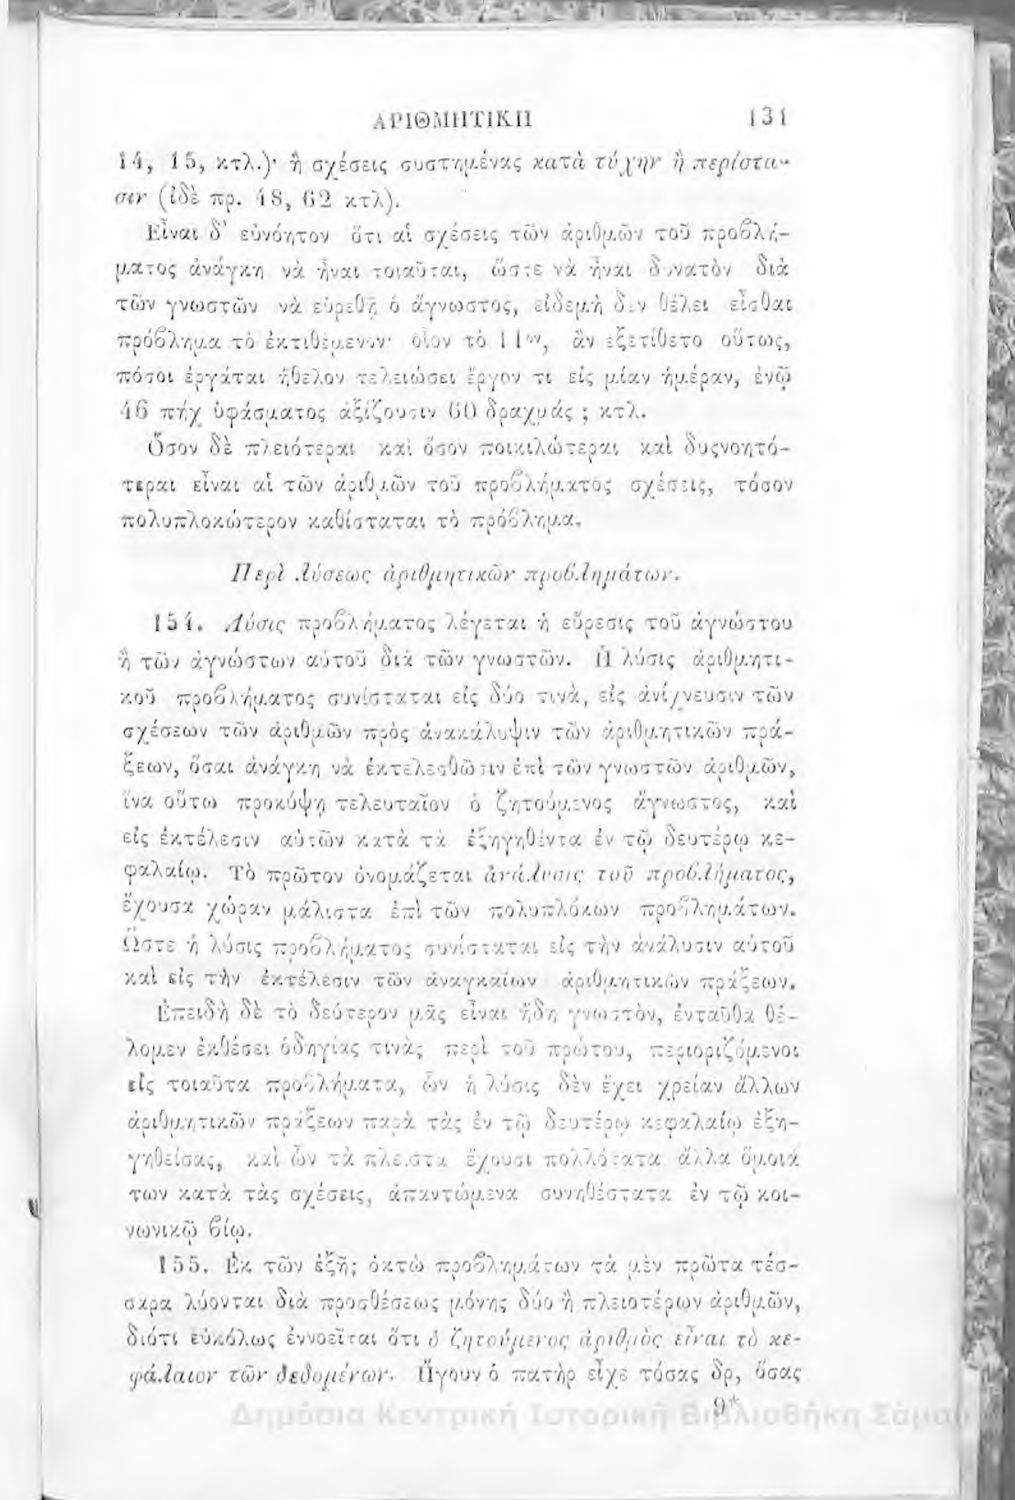 ΑΡΙΘΜΗΤΙΚΗ 131
14, 15, κτλ.)· ἢ σχέσεις συστημένας κατὰ τύχην ἢ περίστα-
σιν (ἰδὲ πρ. 48, 62 κτλ).
Εἶναι δ' εὐνόητον ὅτι αἱ σχέσεις τῶν ἀριθμῶν τοῦ προβλή-
ματος ἀνάγκη νὰ ἦναι τοιαῦται, ὥστε νὰ ἦναι δυνατὸν διὰ
τῶν γνωστῶν νὰ εὑρεθῇ ὁ ἄγνωστος, εἰδεμὴ δὲν θέλει εἶσθαι
πρόβλημα τὸ ἐκτιθέμενον· οἷον τὸ 11ον, ἂν ἐξετίθετο οὕτως,
πόσοι ἐργάται ἤθελον τελειώσει ἔργον τι εἰς μίαν ἡμέραν, ἐνῷ
46 πήχ ὑφάσματος ἀξίζουσιν 60 δραχμάς ; κτλ.
Ὅσον δὲ πλειότεραι καὶ ὅσον ποικιλώτεραι καὶ δυςνοητό-
τεραι εἶναι αἱ τῶν ἀριθμῶν τοῦ προβλήματος σχέσεις, τόσον
πολυπλοκώτερον καθίσταται τὸ πρόβλημα.
Περὶ λύσεως ἀριθμητικῶν προβλημάτων.
154. Λύσις προβλήματος λέγεται ἡ εὕρεσις τοῦ ἀγνώστου
ἢ τῶν ἀγνώστων αὐτοῦ διὰ τῶν γνωστῶν. Ἡ λύσις ἀριθμητι-
κοῦ προβλήματος συνίσταται εἰς δύο τινὰ, εἰς ἀνίχνευσιν τῶν
σχέσεων τῶν ἀριθμῶν πρὸς ἀνακάλυψιν τῶν ἀριθμητικῶν πρά-
ξεων, ὅσαι ἀνάγκη νὰ ἐκτελεσθῶσιν ἐπὶ τῶν γνωστῶν ἀριθμῶν,
ἵνα οὕτω προκύψῃ τελευταῖον ὁ ζητούμενος ἄγνωστος, καὶ
εἰς ἐκτέλεσιν αὐτῶν κατὰ τὰ ἐξηγηθέντα ἐν τῷ δευτέρῳ κε-
φαλαίῳ. Τὸ πρῶτον ὀνομάζεται ἀνάλυσις τοῦ προβλήματος,
ἔχουσα χώραν μάλιστα ἐπὶ τῶν πολυπλόκων προβλημάτων.
Ὥστε ἡ λύσις προβλήματος συνίσταται εἰς τὴν ἀνάλυσιν αὐτοῦ
καὶ εἰς τὴν ἐκτέλεσιν τῶν ἀναγκαίων ἀριθμητικῶν πράξεων.
Ἐπειδὴ δὲ τὸ δεύτερον μᾶς εἶναι ἤδη γνωστὸν, ἐνταῦθα θέ-
λομεν ἐκθέσει ὁδηγίας τινὰς περὶ τοῦ πρώτου, περιοριζόμενοι
εἰς τοιαῦτα προβλήματα, ὧν ἡ λύσις δὲν ἔχει χρείαν ἄλλων
ἀριθμητικῶν πράξεων παρὰ τὰς ἐν τῷ δευτέρῳ κεφαλαίῳ ἐξη-
γηθείσας, καὶ ὧν τὰ πλεῖστα ἔχουσι πολλότατα ἄλλα ὅμοιά
των κατὰ τὰς σχέσεις, ἀπαντώμενα συνηθέστατα ἐν τῷ κοι-
νωνικῷ βίῳ.
155. Ἐκ τῶν ἑξῆς ὀκτὼ προβλημάτων τὰ μὲν πρῶτα τέσ-
σαρα λύονται διὰ προσθέσεως μόνης δύο ἢ πλειοτέρων ἀριθμῶν,
διότι εὐκόλως ἐννοεῖται ὅτι ὁ ζητούμενος ἀριθμὸς εἶναι τὸ κε-
φάλαιον τῶν δεδομένων. Ἤγουν ὁ πατὴρ εἶχε τόσας δρ, ὅσας
9*
Δημόσια Κεντρική Ιστορική Βιβλιοθήκη Σάμου